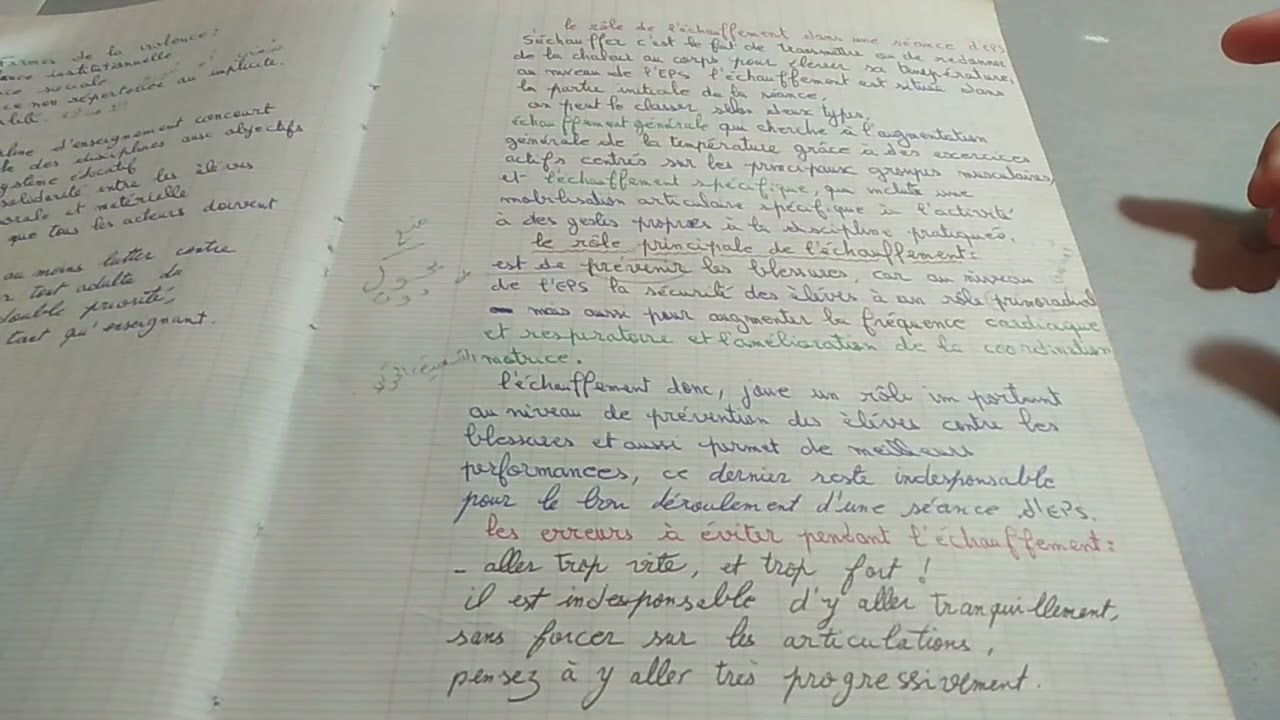 formes de la violence:
institutionnelle.
sociale.
ce non répertoriée au implicite.
d'enseignement concourt
des disciplines aux objectifs
système éducatif
solidarité entre les élèves
morale et matérielle
que tous les acteurs doivent
au moins lutter contre
tout adulte du
double priorité,
tant qu'enseignant.
le rôle de l'échauffement dans une séance d'EPS
S'échauffer c'est le fait de transmettre ou de redonner
de la chaleur au corps pour élever sa température,
au niveau de l'EPS l'échauffement est située dans
la partie initiale de la séance,
on peut le classer selon deux types,
échauffement générale qui cherche à l'augmentation
générale de la température grâce à des exercices
actifs centrés sur les principaux groupes musculaires,
et l'échauffement spécifique, qui inclute une
mobilisation articulaire spécifique à l'activité
à des gestes propres à la discipline pratiqués.
le rôle principale de l'échauffement:
est de prévenir les blessures, car au niveau
de l'EPS la sécurité des élèves à un rôle primoradial
- mais aussi pour augmenter la fréquence cardiaque
et respiratoire et l'amélioration de la coordination
motrice.
l'échauffement donc, joue un rôle important
au niveau de prévention des élèves contre les
blessures et aussi permet de meilleurs
performances, ce dernier reste indesponsable
pour le bon déroulement d'une séance d'EPS.
les erreurs à éviter pendant l'échauffement:
- aller trop vite, et trop fort !
il est indesponsable d'y aller tranquillement,
sans forcer sur les articulations,
pensez à y aller très progressivement.